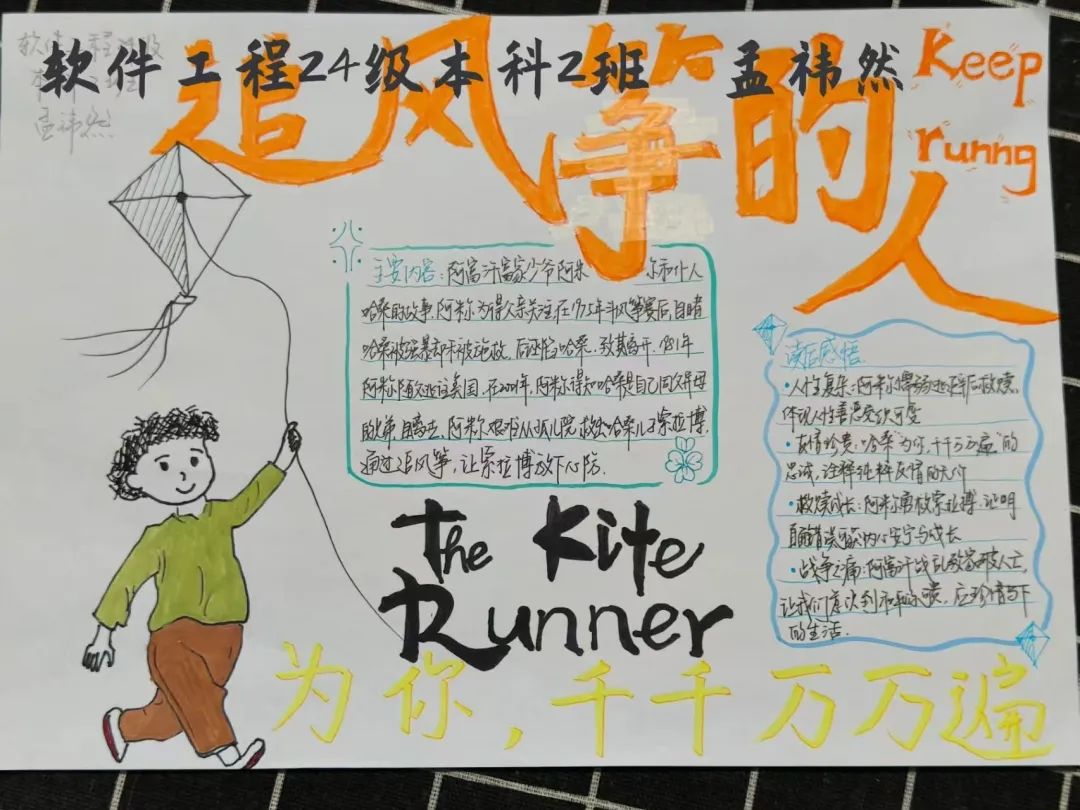 软件工程24级本科2班 孟祎然
追风筝的人
Keep
runng
主要内容:阿富汗富家少爷阿米尔和仆人
哈桑的故事,阿米尔为得父亲关注,在1975年斗风筝赛后,目睹
哈桑被强暴却未被施救,后诬陷哈桑,致其离开,1981年
阿米尔随父逃往美国,在2001年,阿米尔得知哈桑是自己同父异母
的弟,且离去,阿米尔艰难从孤儿院救出哈桑儿子索拉博,
通过追风筝,让索拉博放下心防.
The Kite
Runner
读后感悟
·人性复杂:阿米尔懦弱逃避后救赎,
体现人性善恶交织可变
·友情珍贵:哈桑"为你,千千万万遍"的
忠诚,诠释纯粹友情的
·救赎成长:阿米尔勇救索拉博,证明
直面错误可获内心安宁与成长
·战争之痛:阿富汗战乱致家破人亡,
让我们意识到和平可贵,应珍惜当下
的生活.
为你,千千万万遍